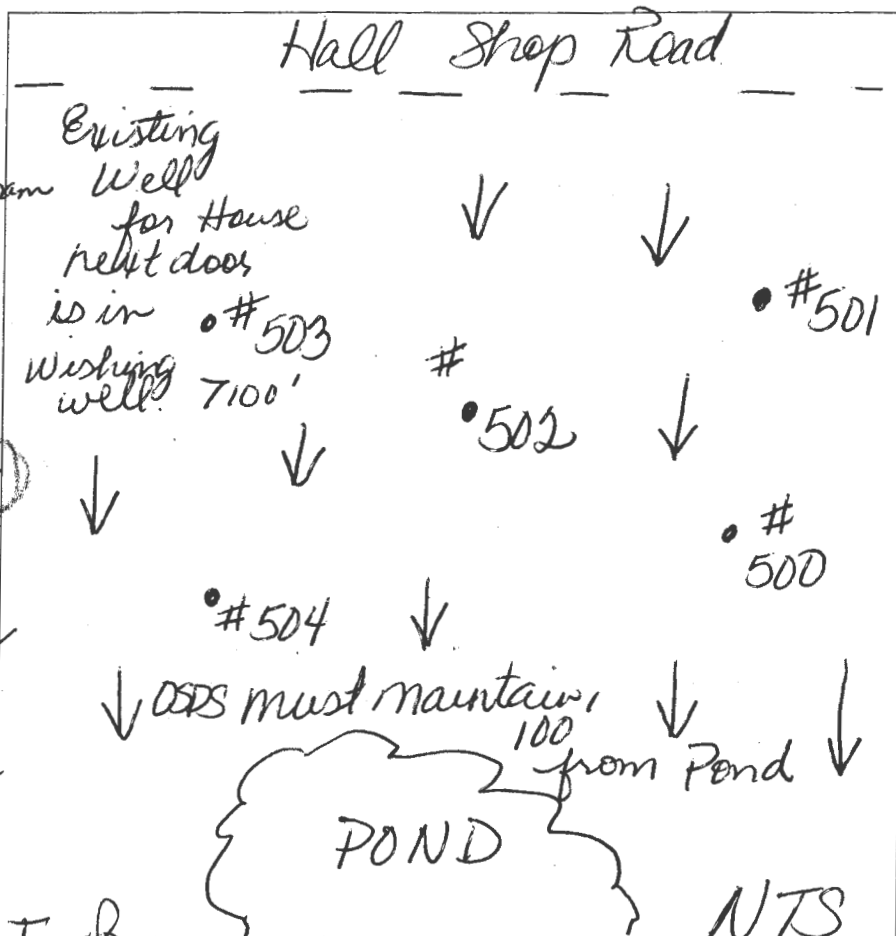 Hall Shop Road
Existing
Well
for House
next door
is in
wishing
well. 7100'
#503
#
502
#501
#
500
#504
OSDS must maintain
100'
from Pond
POND
NTS